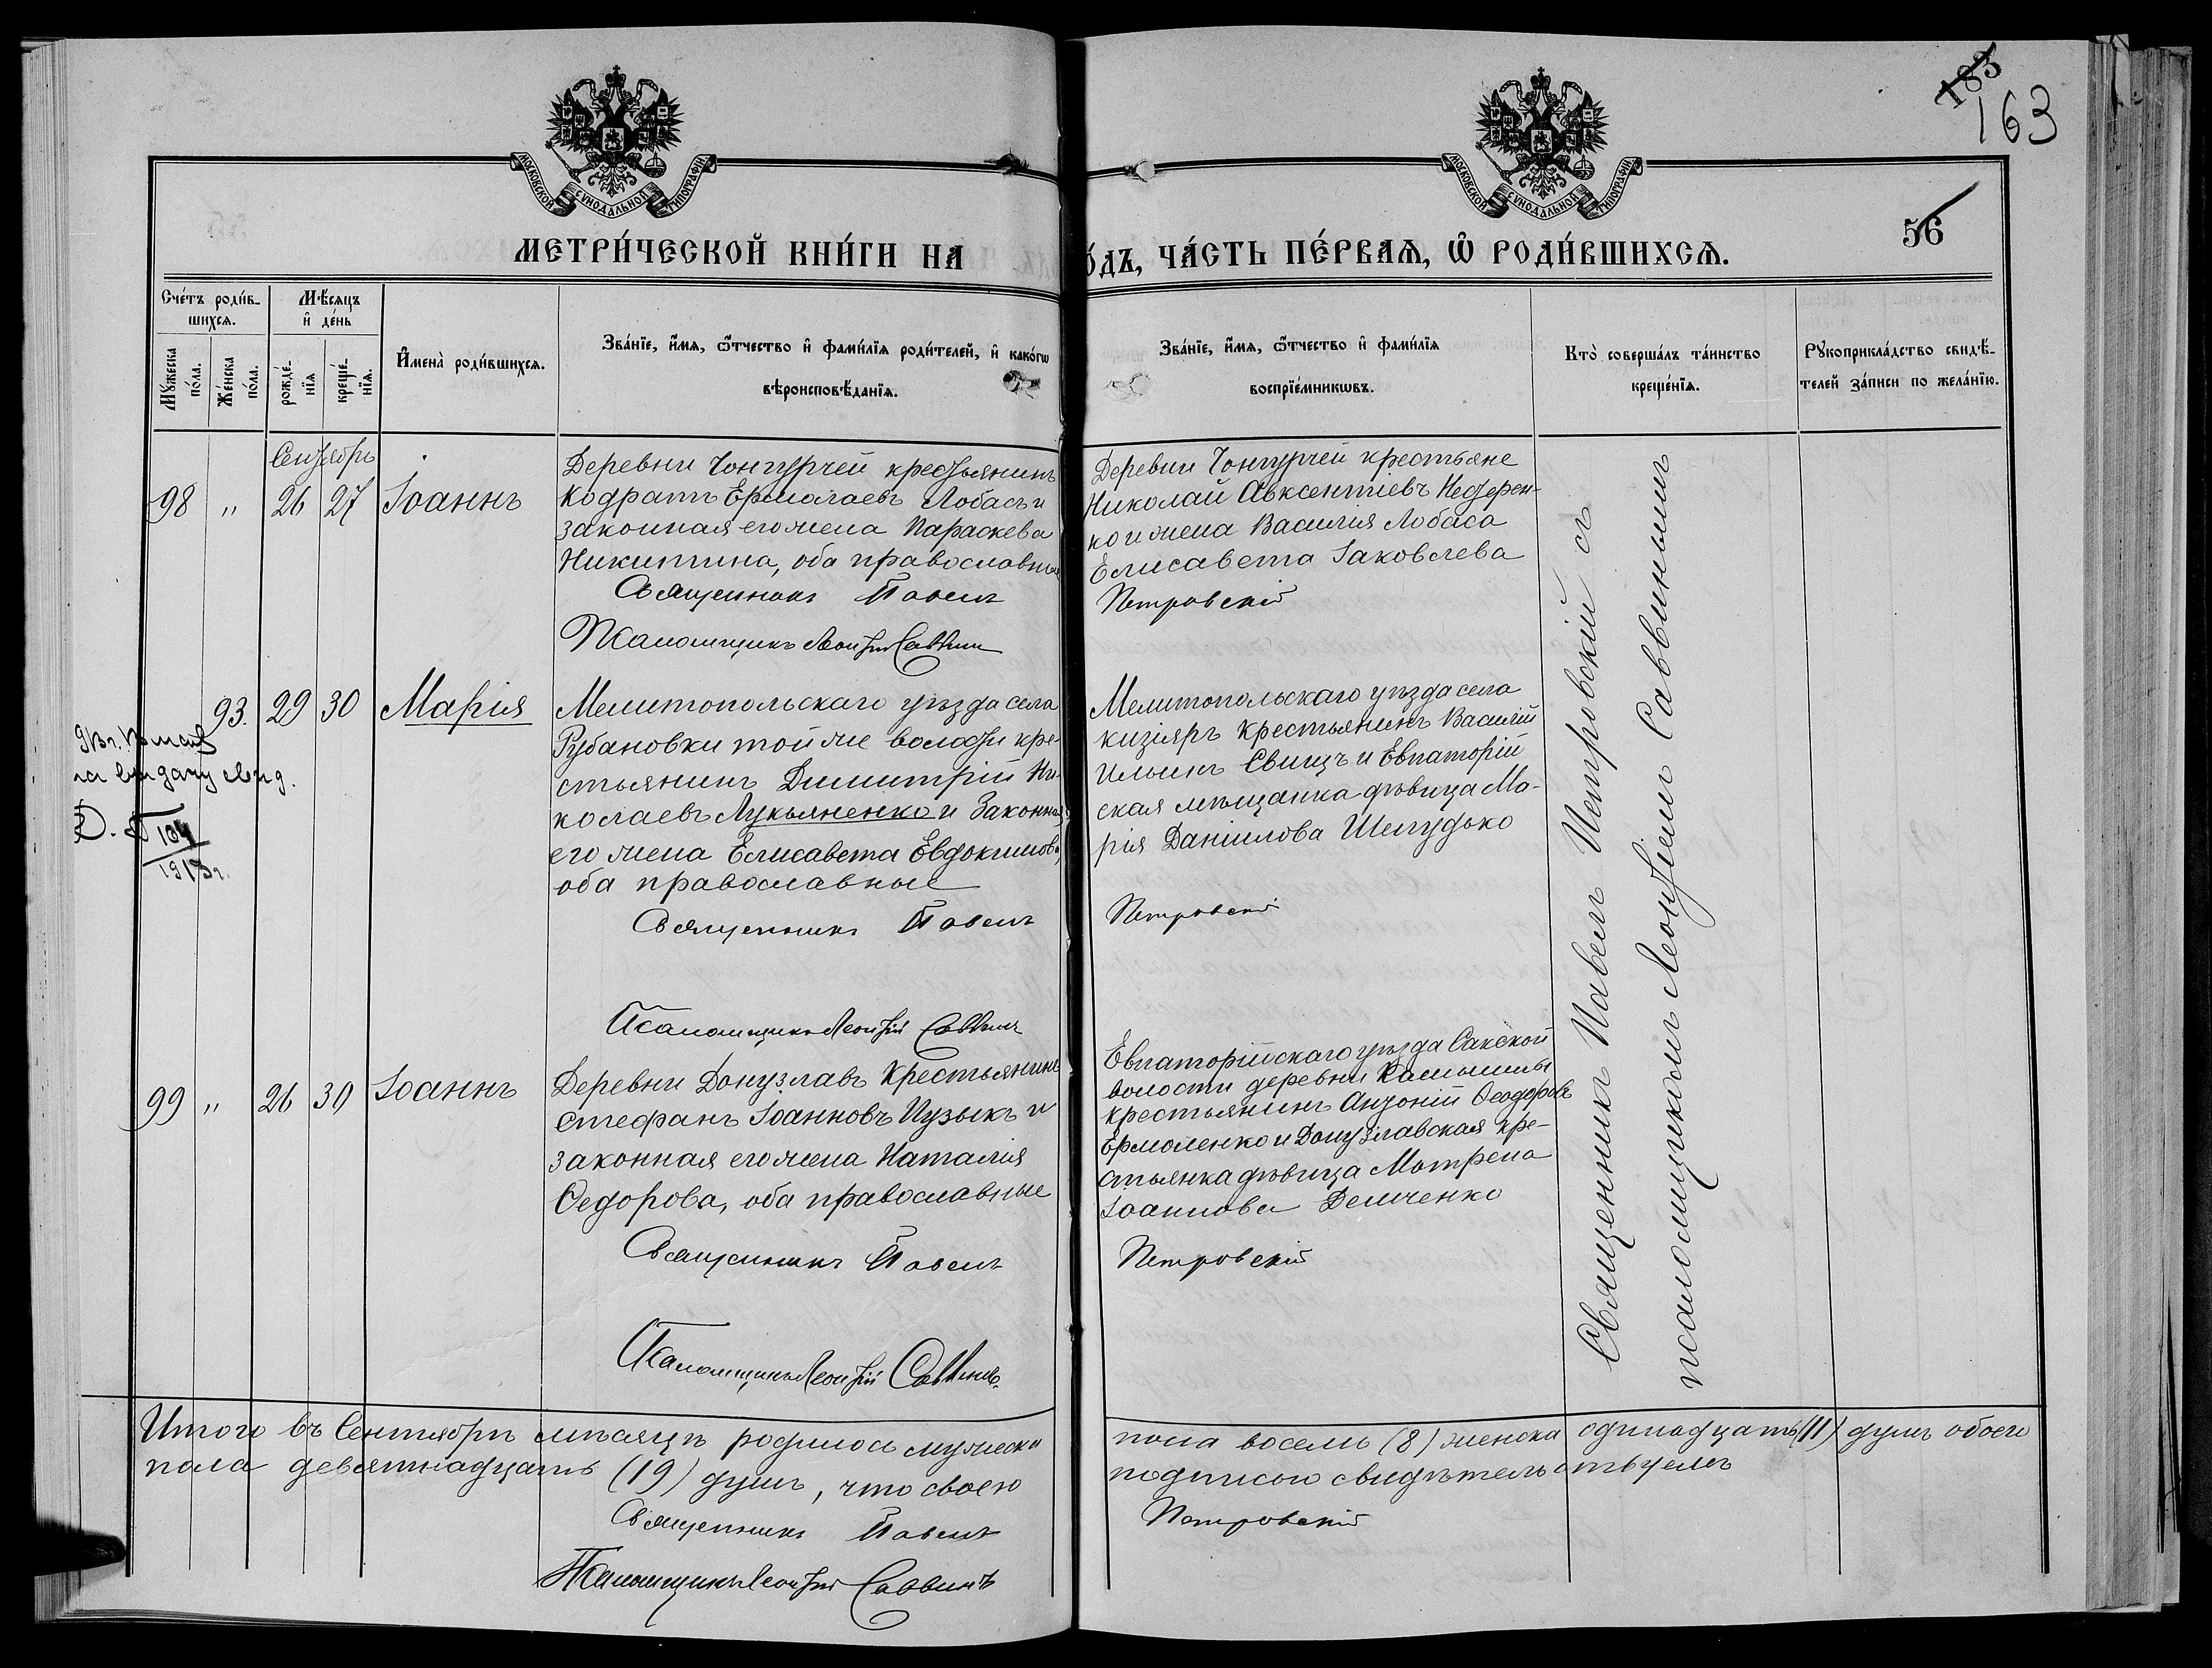 183
163
МОСКОВСКОЙ СѴНОДАЛЬНОЙ ТИПОГРАФІИ
МОСКОВСКОЙ СѴНОДАЛЬНОЙ ТИПОГРАФІИ
56
МЕТРИ́ЧЕСКОЙ КНИ́ГИ НА
О́ДЪ, ЧА́СТЬ ПЕ́РВАѦ, Ѡ҆ РОДИ́ВШИХСѦ.
Сче́тъ роди́в-
шихсѧ.
Мꙋ́жеска
по́ла.
Же́нска
по́ла.
Мѣ́сѧцъ
и҆ де́нь
рожде́-
нїѧ
креще́-
нїѧ.
И҆мена̀ роди́вшихсѧ.
Зва́нїе, и҆́мѧ, ѻ҆́тчество и҆ фамѝлїѧ роди́телей, и҆ како́гѡ
вѣроисповѣ́данїѧ.
Зва́нїе, и҆́мѧ, ѻ҆́тчество и҆ фамѝлїѧ
воспрїе́мникѡвъ.
Кто̀ соверша́лъ та́инство
креще́нїѧ.
Рꙋкоприкла́дство свидѣ́-
телей за́писи по жела́нїю.
Сентябрь
98 " 26 27 Іоаннъ
Деревни Чонгурчей крестьянинъ
Кодратъ Ермолаевъ Лобасъ и
законная его жена Параскева
Никитина, оба православные
Священникъ Павелъ
Псаломщикъ Леонтій Саввин
Деревни Чонгурчей крестьяне
Николай Авксентіевъ Нестерен-
ко и жена Василія Лобаса
Елисавета Іаковлева
Петровскій
93. 29 30 Марія
Мелитопольскаго уѣзда села
Рубановки той же волости кре-
стьянинъ Димитрій Ни-
колаевъ Лукьяненко и законная
его жена Елисавета Евдокимова,
оба православные
Священникъ Павелъ
Псаломщикъ Леонтій Саввинъ
Мелитопольскаго уѣзда села
Кизіяръ крестьянинъ Василій
Ильинъ Свищъ и Евпаторій
ская мѣщанка дѣвица Ма-
рія Даніилова Шелудько
Петровскій
на выдачу свид.
104
1913 г.
99 " 26 30 Іоаннъ
Деревни Донузлавъ крестьянинъ
Стефанъ Іоанновъ Пузыкъ и
законная его жена Наталія
Ѳедорова, оба православные
Священникъ Павелъ
Псаломщикъ Леонтій Саввинъ
Евпаторійскаго уѣзда Сакской
волости деревни Камышлы
крестьянинъ Антоній Ѳеодоровъ
Ермоленко и Донузлавская кре-
стьянка дѣвица Матрена
Іоаннова Демченко
Петровскій
Священникъ Павелъ Петровскій съ
псаломщикомъ Леонтіемъ Саввинымъ
Итого въ Сентябрѣ мѣсяцѣ родилось мужеска пола восемь (8) женска одинадцать (11) душъ обоего
пола девятнадцать (19) душъ, что своею подписью свидѣтельствуемъ
Священникъ Павелъ Петровскій
Псаломщикъ Леонтій Саввинъ